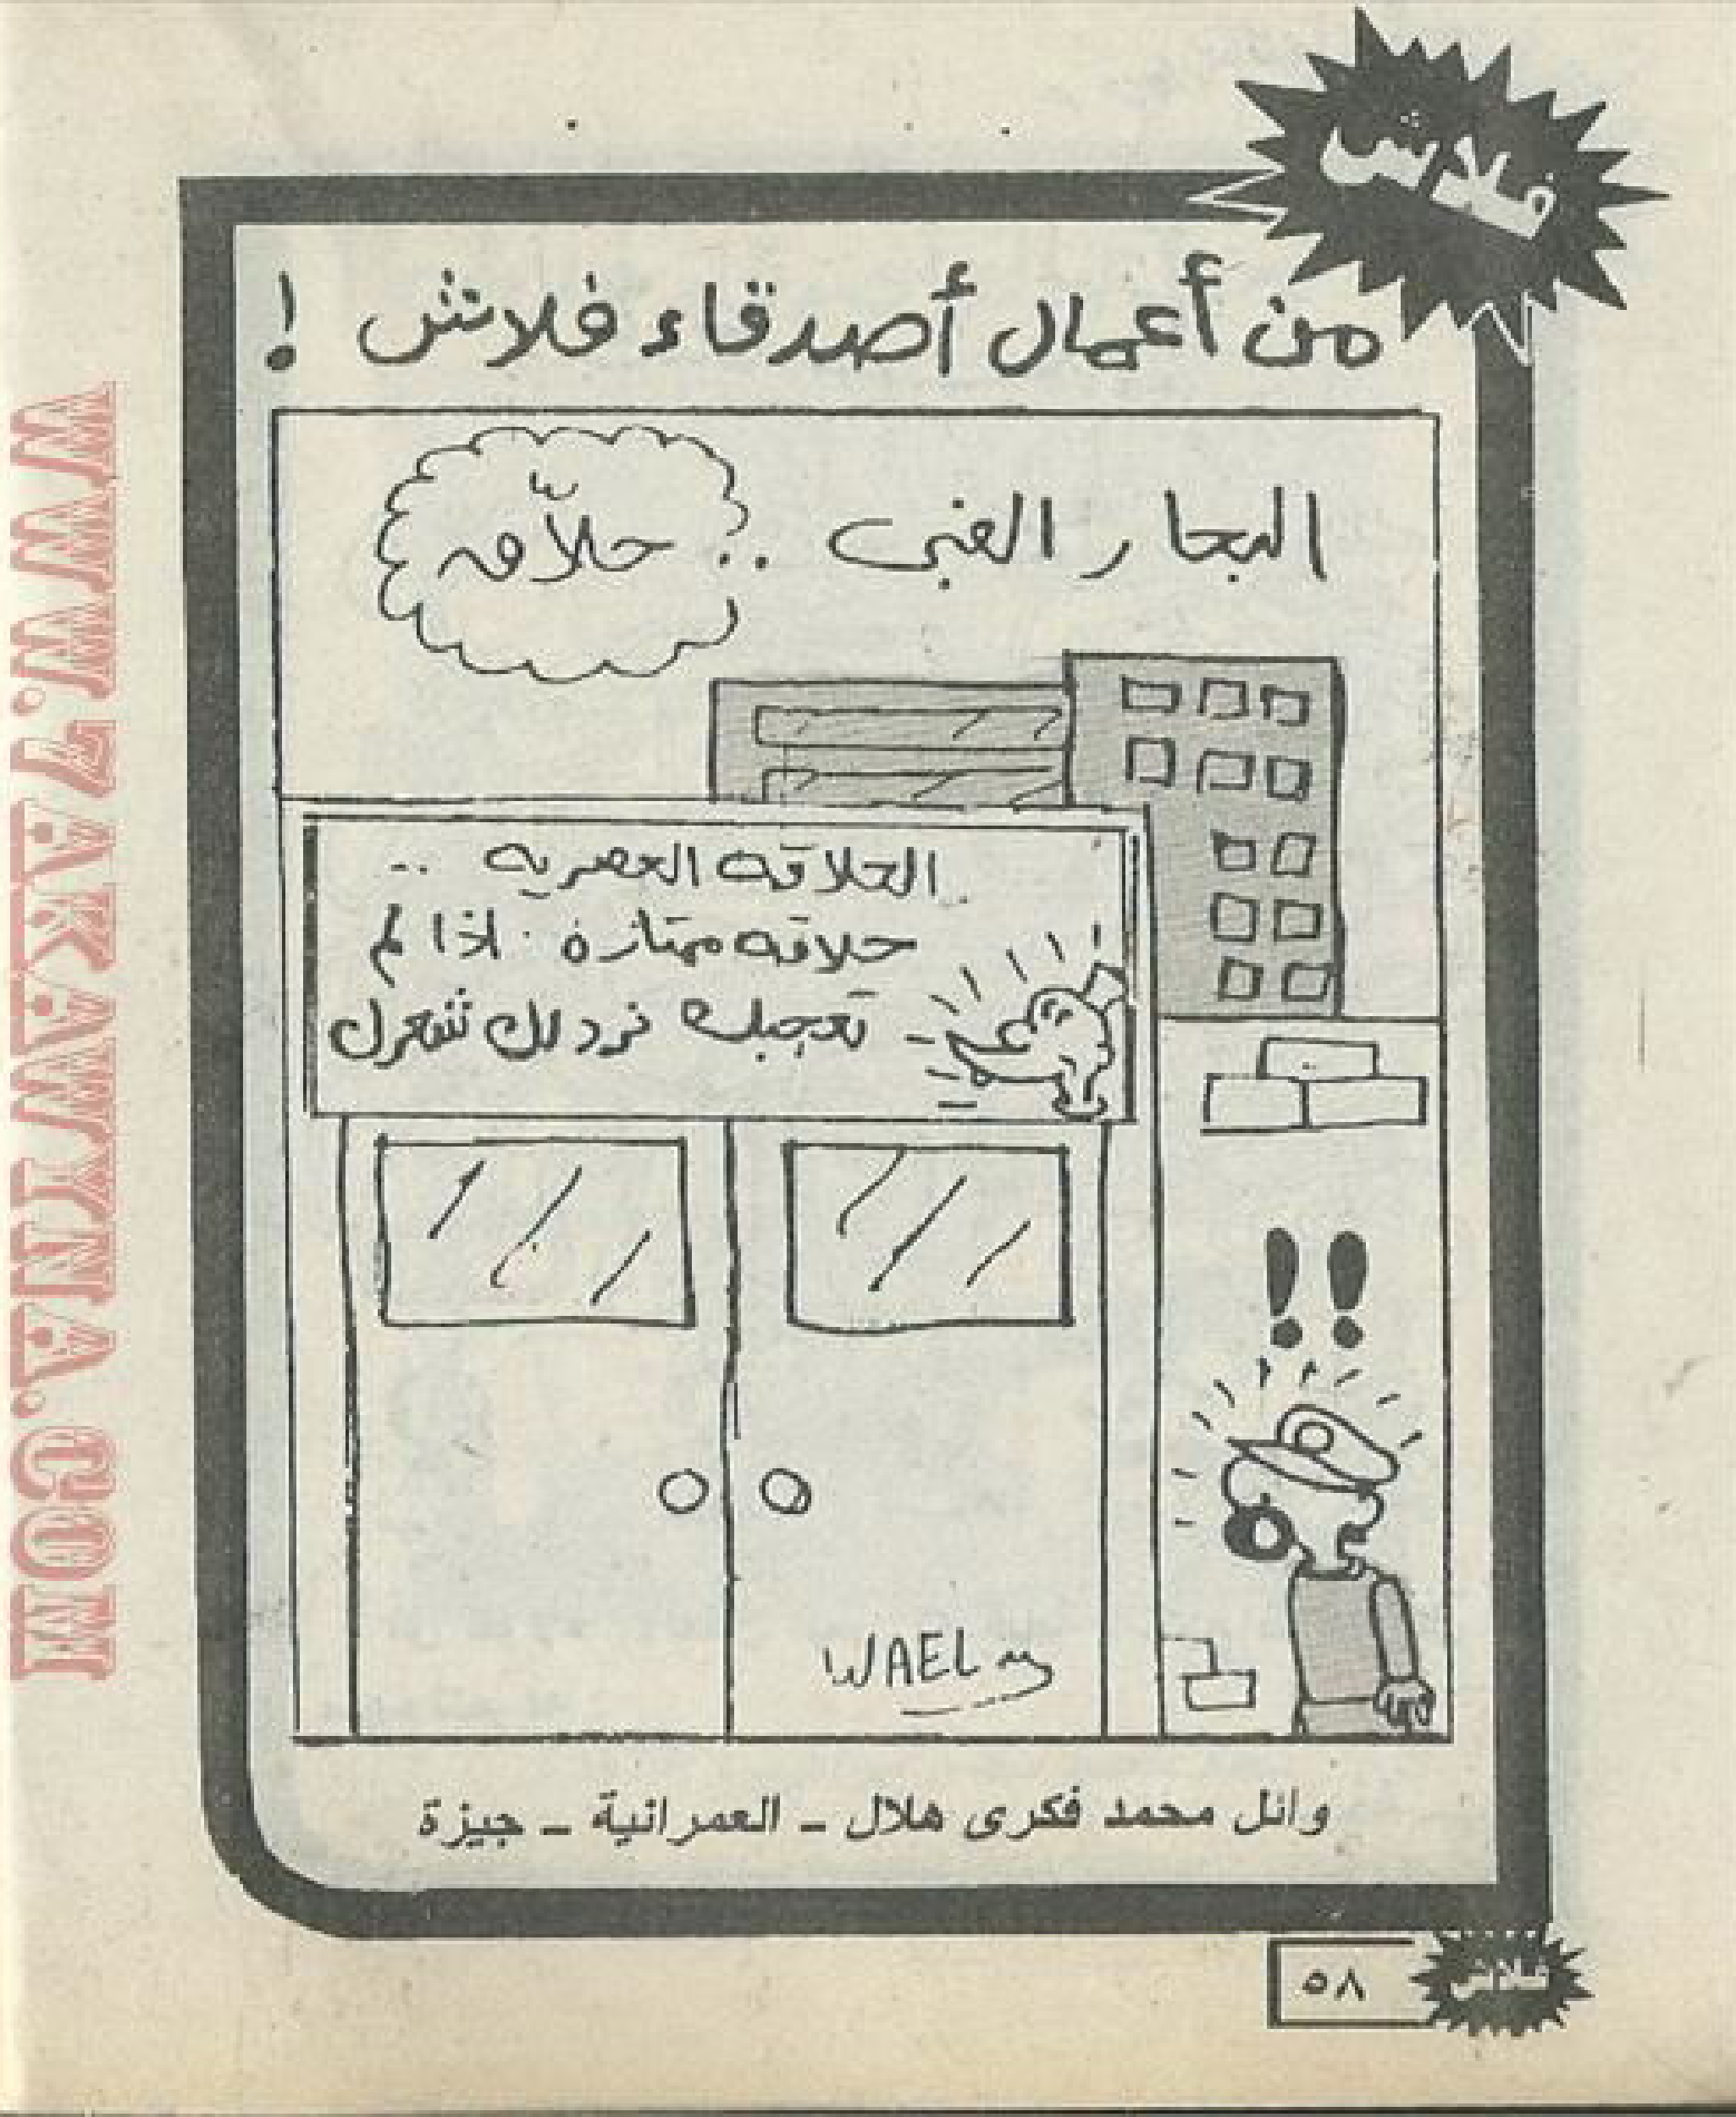 فلاش
من أعمال أصدقاء فلاش !
البحار الغبى .. حلاّقه
الحلاقه العصريه ..
حلاقه ممتازه . اذا لم
تعجبك نرد لك شعرك
WAEL
وائل محمد فكرى هلال ـ العمرانية ـ جيزة
٥٨
فلاش
WWW.7AKAWITNA.COM